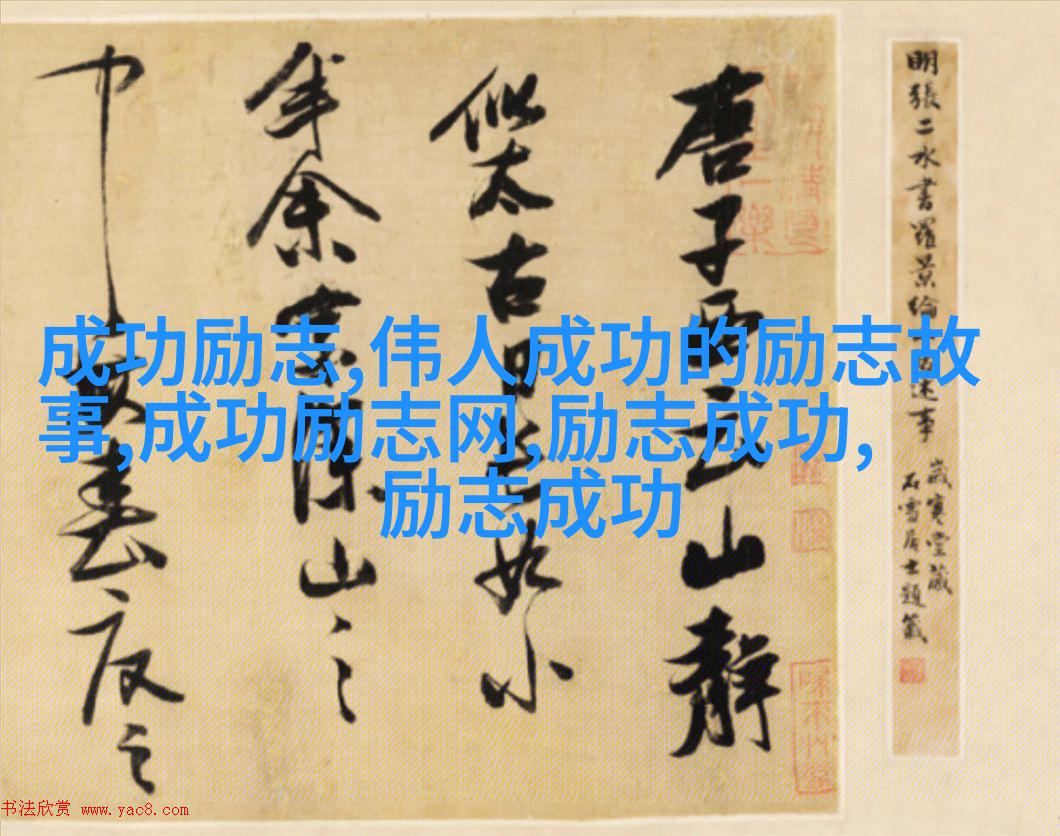 成功励志,伟人成功的励志故
事,成功励志网,励志成功,
励志成功
明張二水書羅景綸述事
歲寒堂藏
石雪居士題籤
唐子西云山靜
似太古日如小
年余家深山之
中春夏之
书法欣赏 www.yac8.com